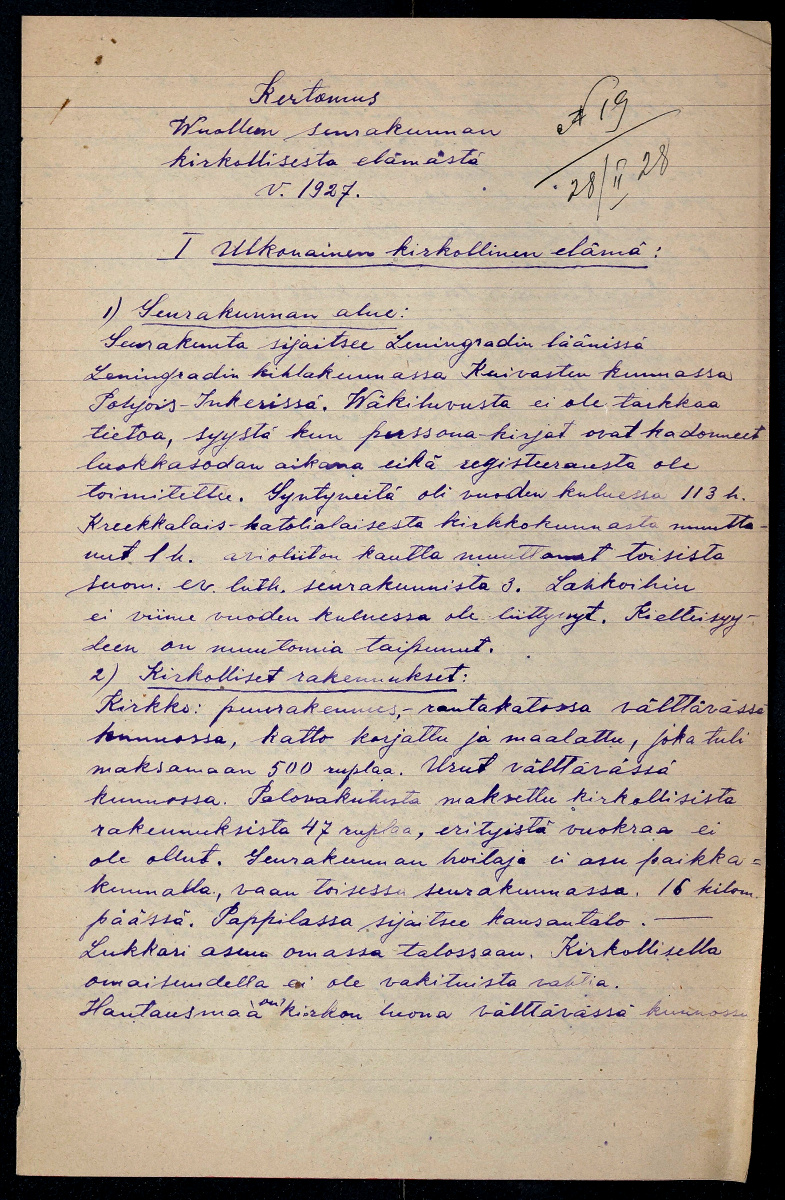 Kertomus
Wuolleen seurakunnan
kirkollisesta elämästä
v. 1927.
№ 19
28/II 28
I Ulkonainen kirkollinen elämä:
1) Seurakunnan alue:
Seurakunta sijaitsee Leningradin läänissä
Leningradin kihlakunnassa Kuivasten kunnassa
Pohjois-Inkerissä. Wäkiluvusta ei ole tarkkaa
tietoa, syystä kun perssona-kirjat ovat kadonneet
luokkasodan aikana eikä registeerausta ole
toimitettu. Syntyneitä oli vuoden kuluessa 113 h.
Kreekkalais-katolialaisesta kirkkokunnasta muutta-
nut 1 h. avioliiton kautta muuttanut toisista
suom. ev. luth. seurakunnista 3. Lahkoihin
ei viime vuoden kuluessa ole liittynyt. Kielteisyy-
deen on muutomia taipunut.
2) Kirkolliset rakennukset:
Kirkko: puurakennus,- rautakatossa välttävässä
kunnossa, katto korjattu ja maalattu, joka tuli
maksamaan 500 ruplaa. Urut välttävässä
kunnossa. Palovakutusta maksettu kirkollisista
rakennuksista 47 ruplaa, erityistä vuokraa ei
ole ollut. Seurakunnan hoitaja ei asu paikka=
kunnalla, vaan toisessa seurakunnassa. 16 kilom.
päässä. Pappilassa sijaitsee kansantalo. —
Lukkari asuu omassa talossaan. Kirkollisella
omaisuudella ei ole vakituista vahtia.
Hautausmaa on kirkon luona välttävässä kunnossa